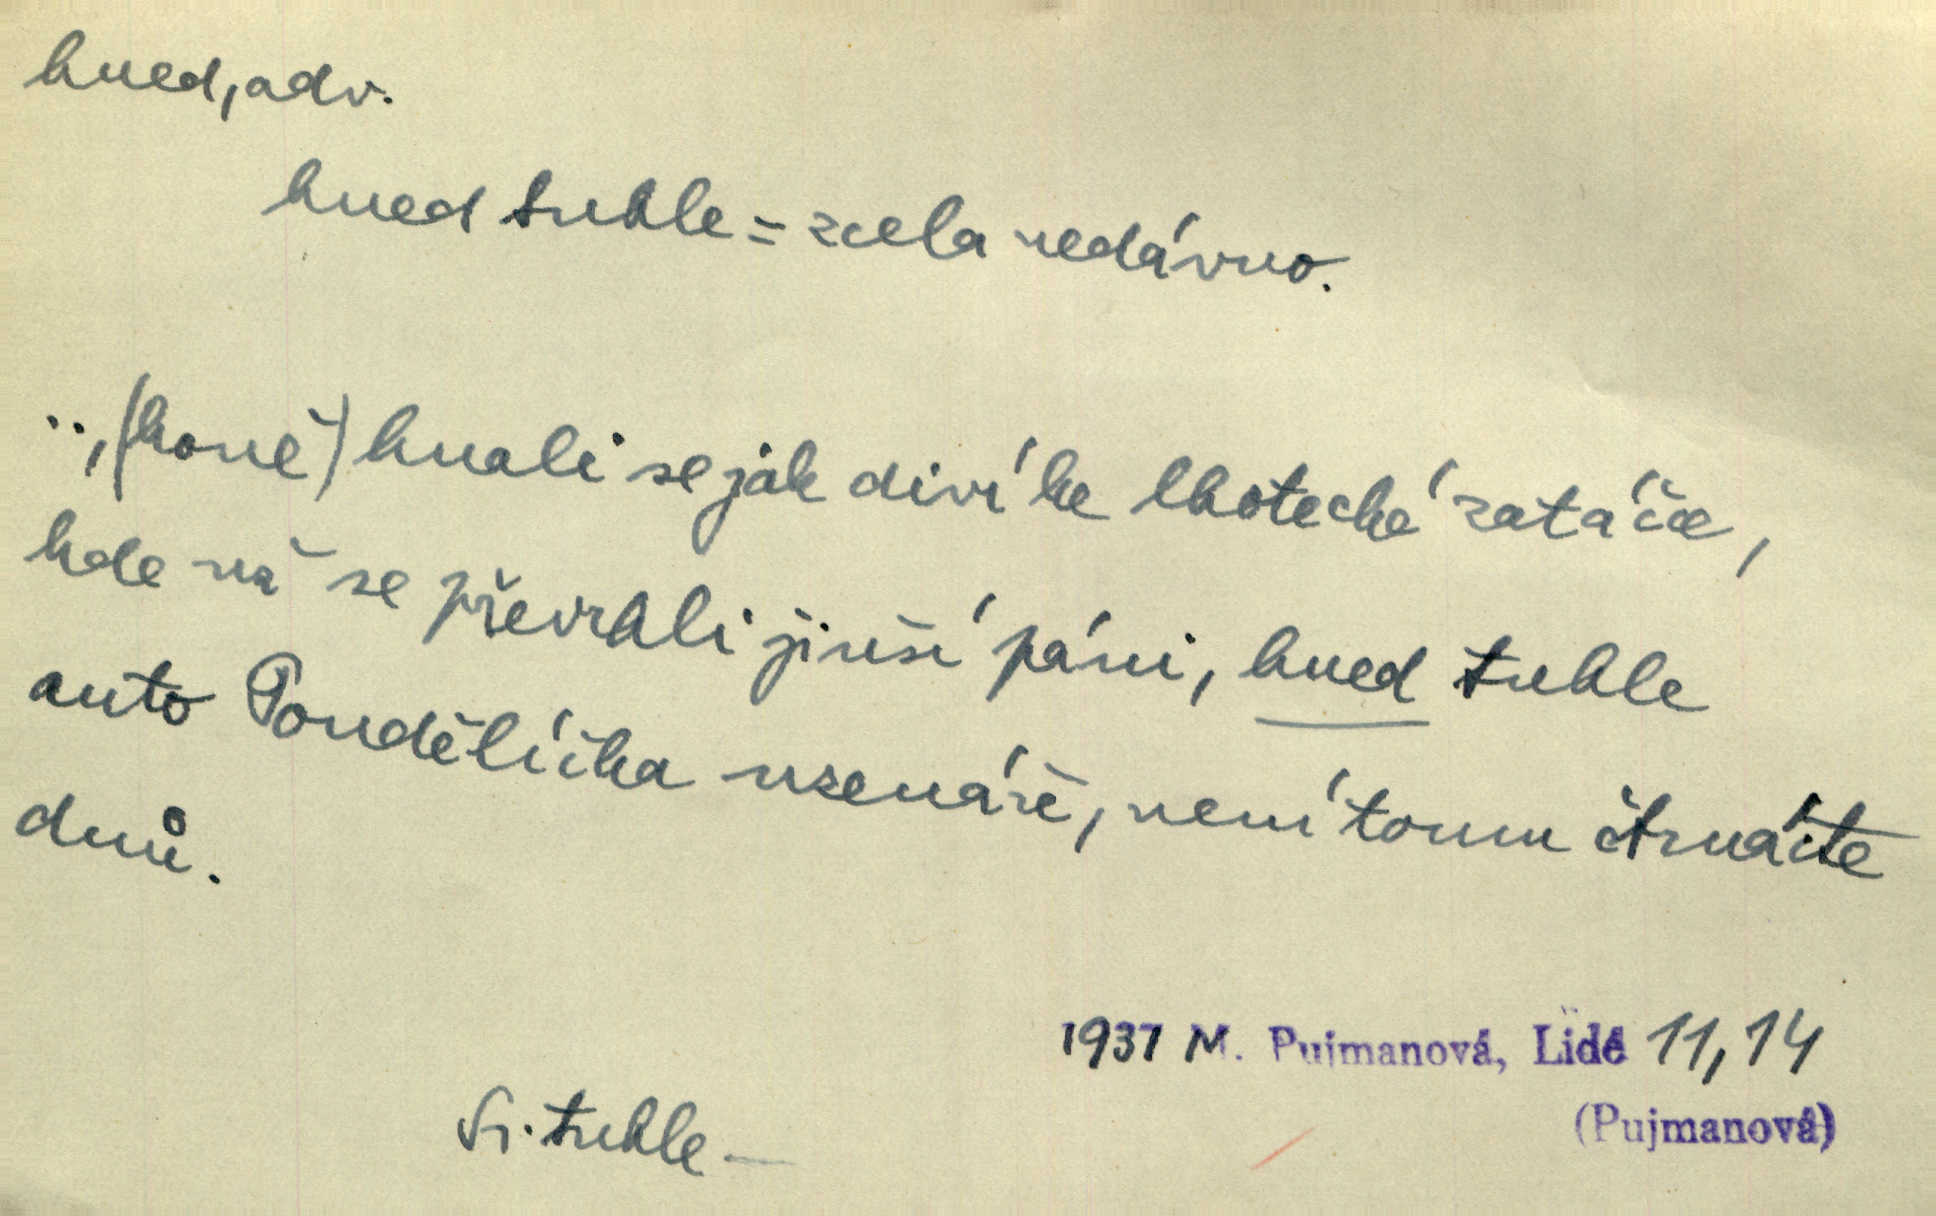 hned, adv.
hned tuhle = zcela nedávno.
.., (koně) hnali se jak diví ke lhotecké zatáčce,
kde už se převrhli jinší páni, hned tuhle
auto Pondělíčka uzenáře, není tomu čtrnácte
dnů.
1937 M. Pujmanová, Lidé 11, 14
(Pujmanová)
Sr. tuhle —